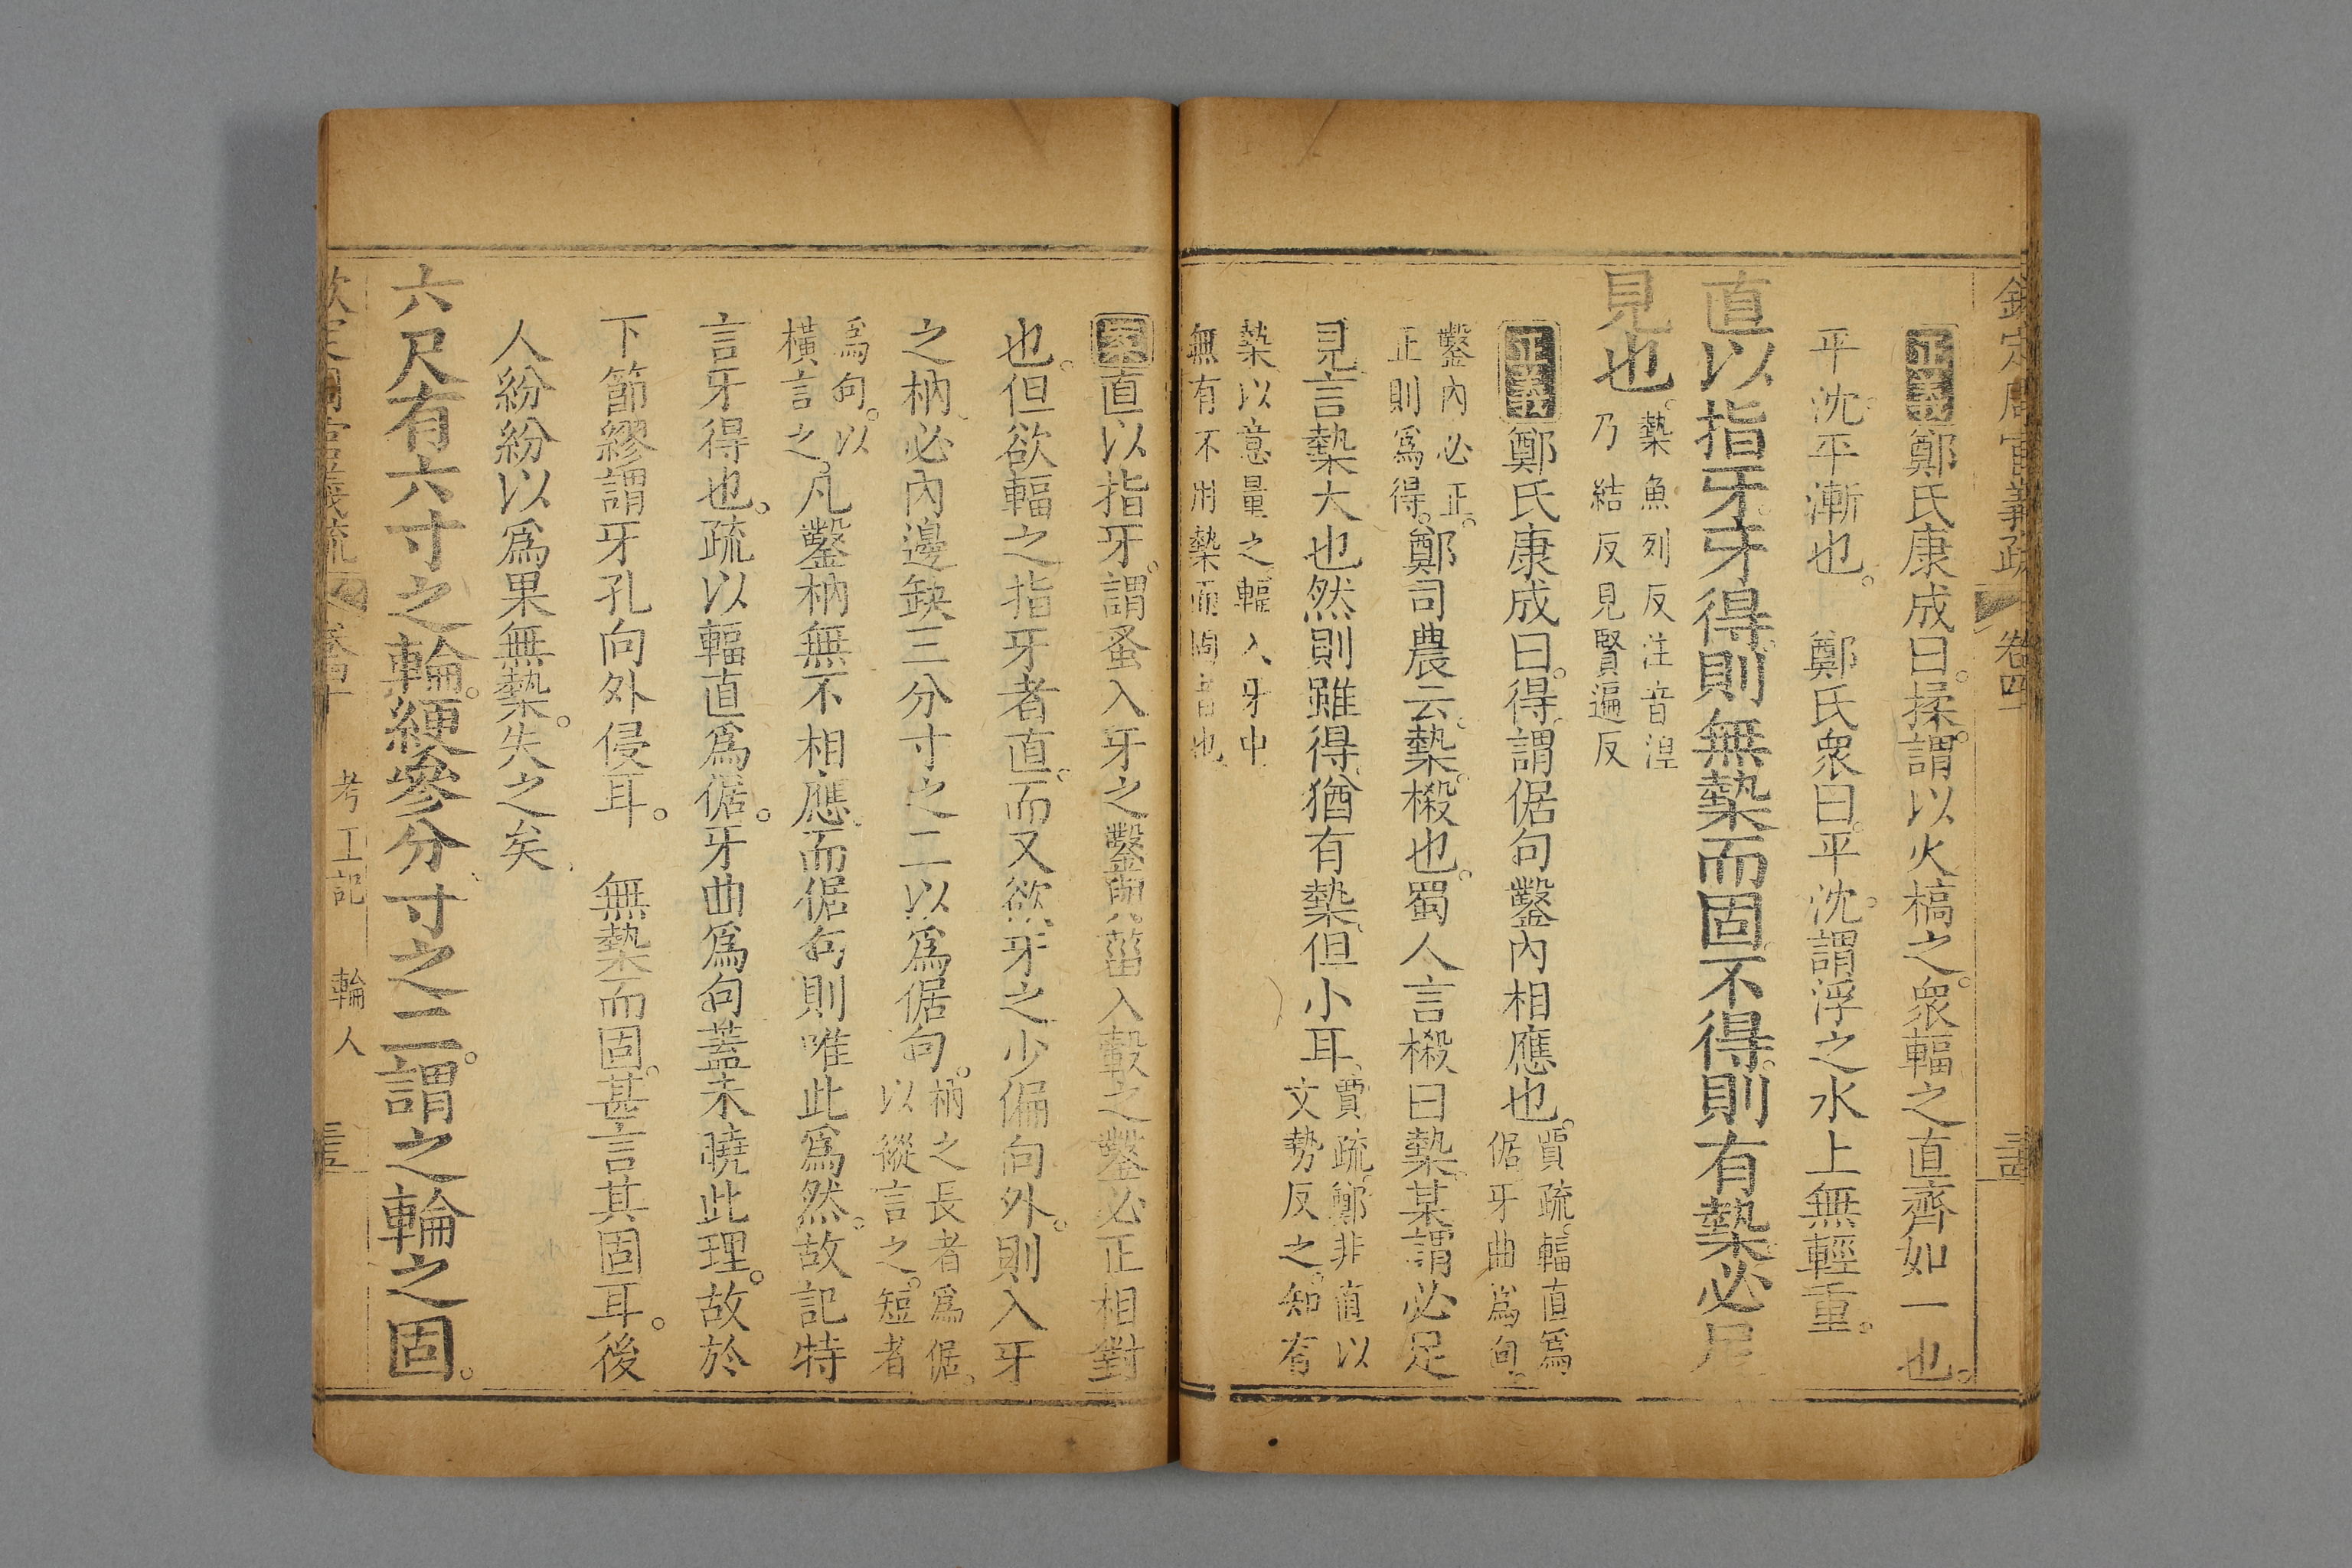 欽定周官義疏 卷四十
正義鄭氏康成曰揉謂以火槁之衆輻之直齊如一也
平沈平漸也 鄭氏衆曰平沈謂浮之水上無輕重
直以指牙牙得則無槷而固不得則有槷必足
見也槷魚列反注音涅
乃結反見賢遍反
正義鄭氏康成曰得謂倨句鑿內相應也賈疏輻直爲
倨牙曲爲句
鑿內必正
正則爲得鄭司農云槷樧也蜀人言樧曰槷某謂必足
見言槷大也然則雖得猶有槷但小耳賈疏鄭非直以
文勢反之知有
槷以意量之輻入牙中
無有不用槷而固者也
案直以指牙謂蚤入牙之鑿與菑入轂之鑿必正相對
也但欲輻之指牙者直而又欲牙之少偏向外則入牙
之枘必內邊缺三分寸之二以爲倨句枘之長者爲倨
以縱言之短者
爲句以
橫言之凡鑿枘無不相應而倨句則唯此爲然故記特
言牙得也疏以輻直爲倨牙曲爲句蓋未曉此理故於
下節繆謂牙孔向外侵耳 無槷而固甚言其固耳後
人紛紛以爲果無槷失之矣
六尺有六寸之輪綆參分寸之二謂之輪之固
欽定周官義疏 卷四十 考工記 輪人